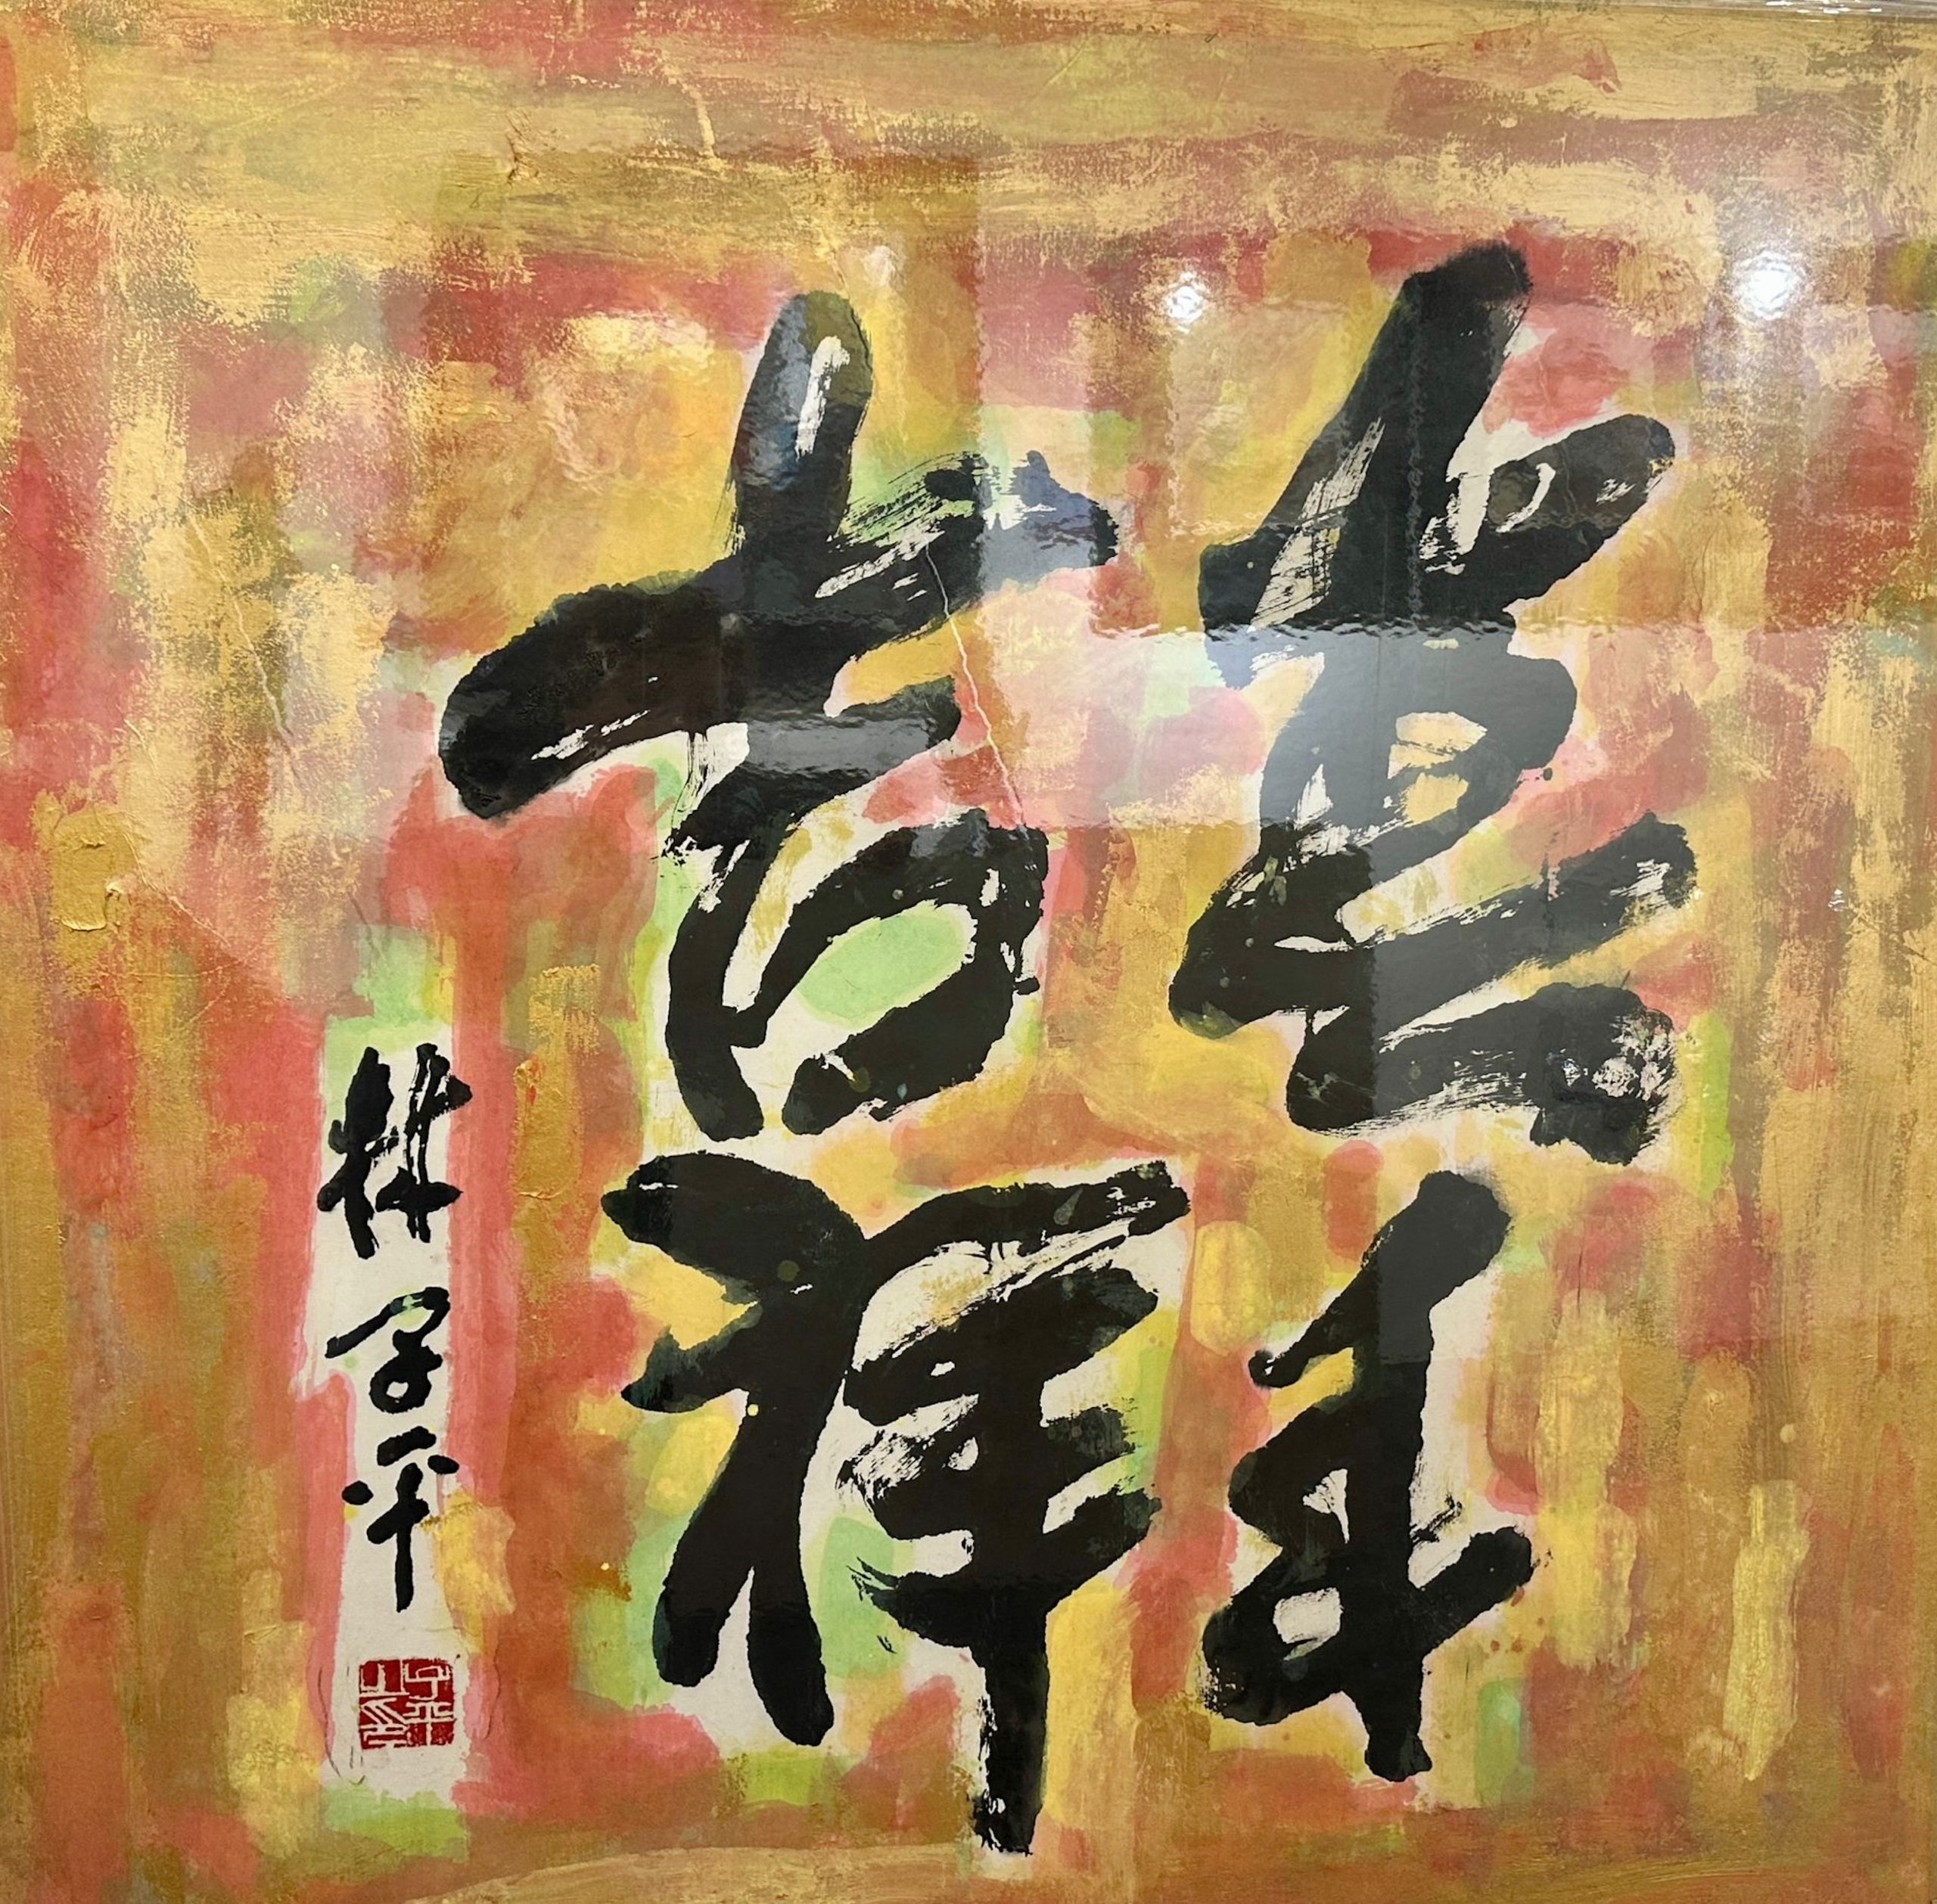 年
吉祥
林子平